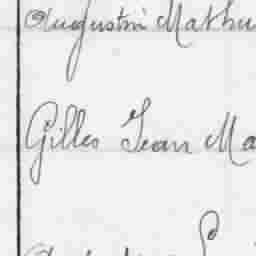 Augustin Mathu
Gilles Jean Ma